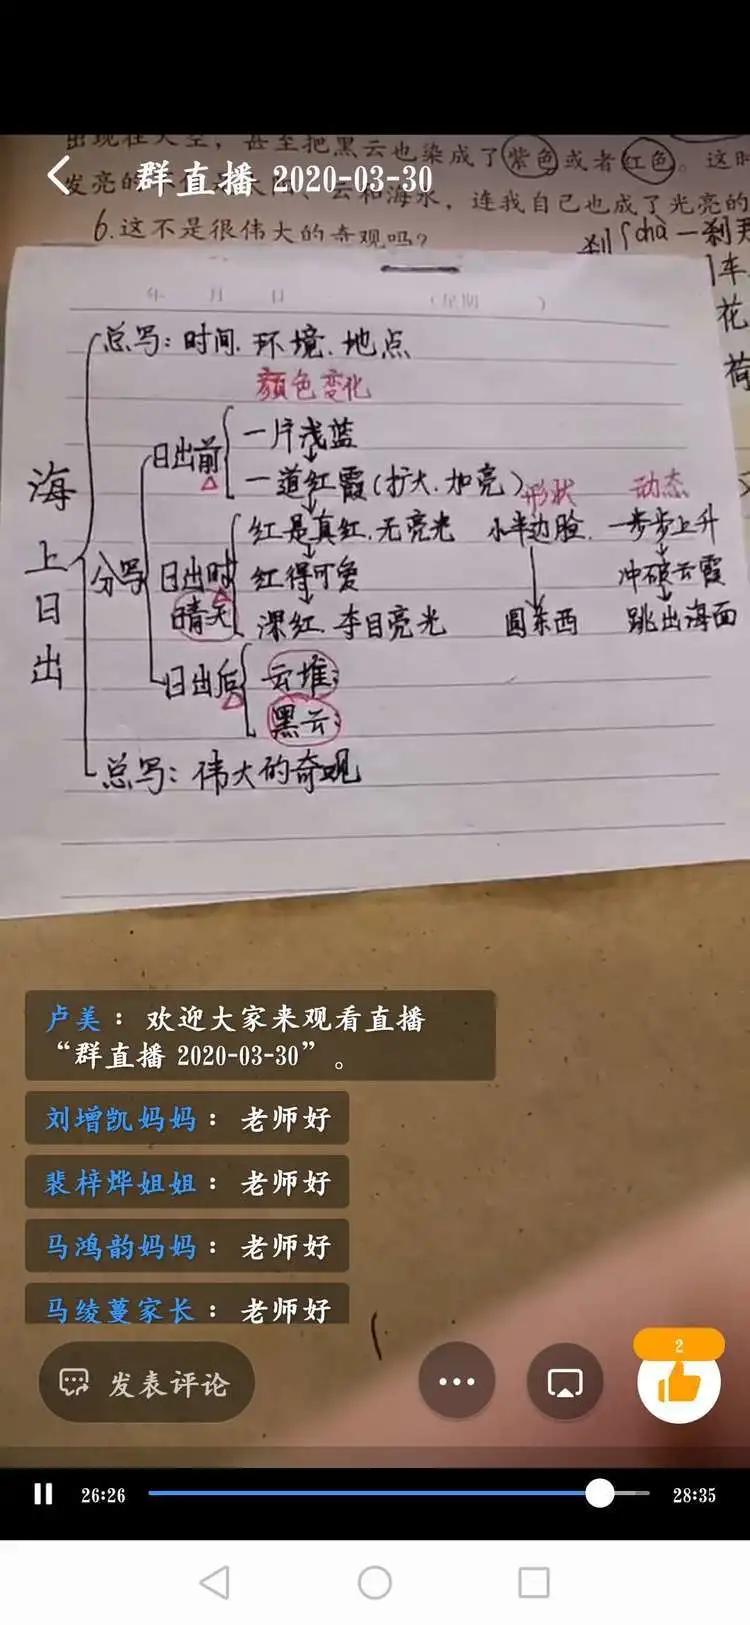 出现在天空，甚至把黑云也染成了紫色或者红色。这时
群直播 2020-03-30
发亮的 云和海水，连我自己也成了光亮的
6.这不是很伟大的奇观吗？
刹 chà 一刹
车
花
荷
年 月 日 （星期 ）
海上日出
总写：时间.环境.地点
颜色变化
分写
日出前
一片浅蓝
一道红霞(扩大.加亮)
形状 动态
日出时
晴天
红是真红.无亮光 小半边脸. 一步步上升
红得可爱 冲破云霞
深红.夺目亮光 圆东西 跳出海面
日出后
云堆：
黑云：
总写：伟大的奇观
卢美： 欢迎大家来观看直播
“群直播 2020-03-30” 。
刘增凯妈妈： 老师好
裴梓烨姐姐： 老师好
马鸿韵妈妈： 老师好
马绫蔓家长： 老师好
发表评论
2
26:26
28:35